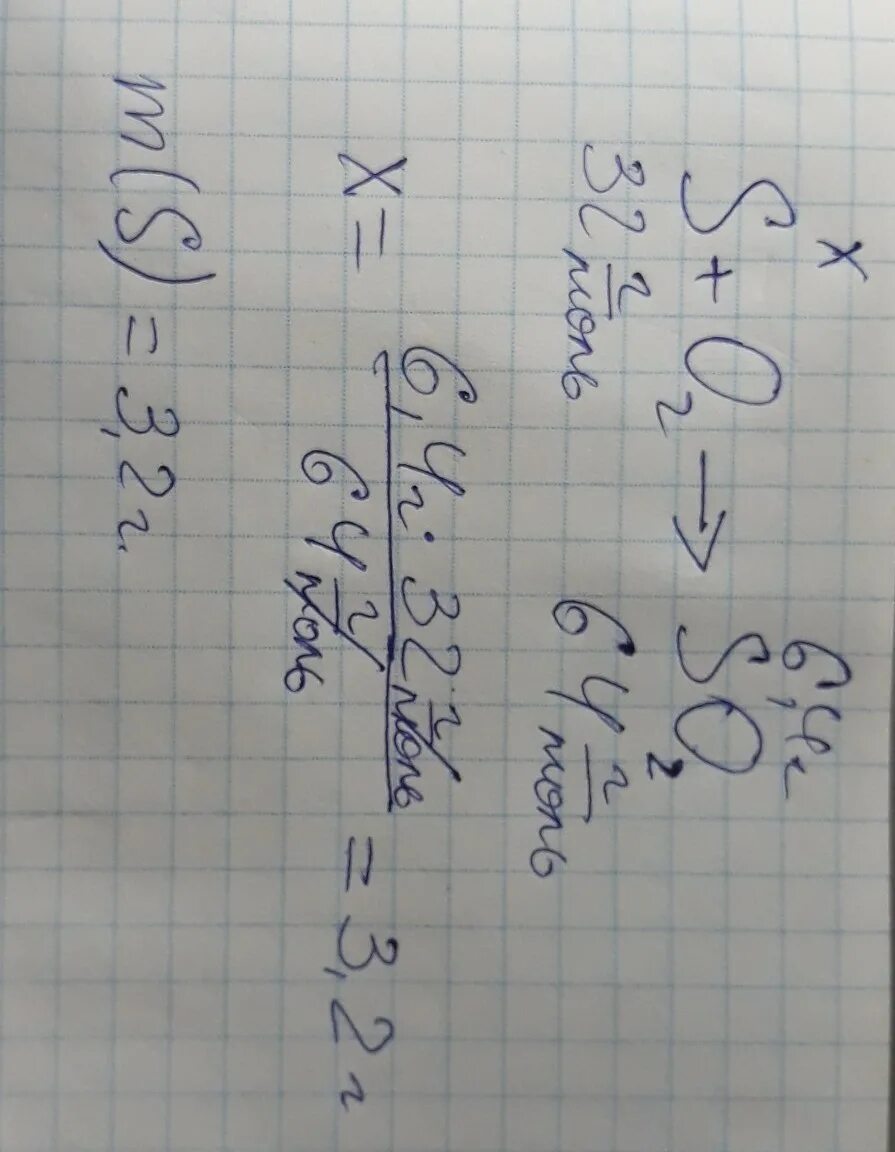 x 6,4г
S + O₂ → SO₂
32 г/моль 64 г/моль
x = 6,4г · 32 г/моль / 64 г/моль = 3,2г
m(S) = 3,2г.